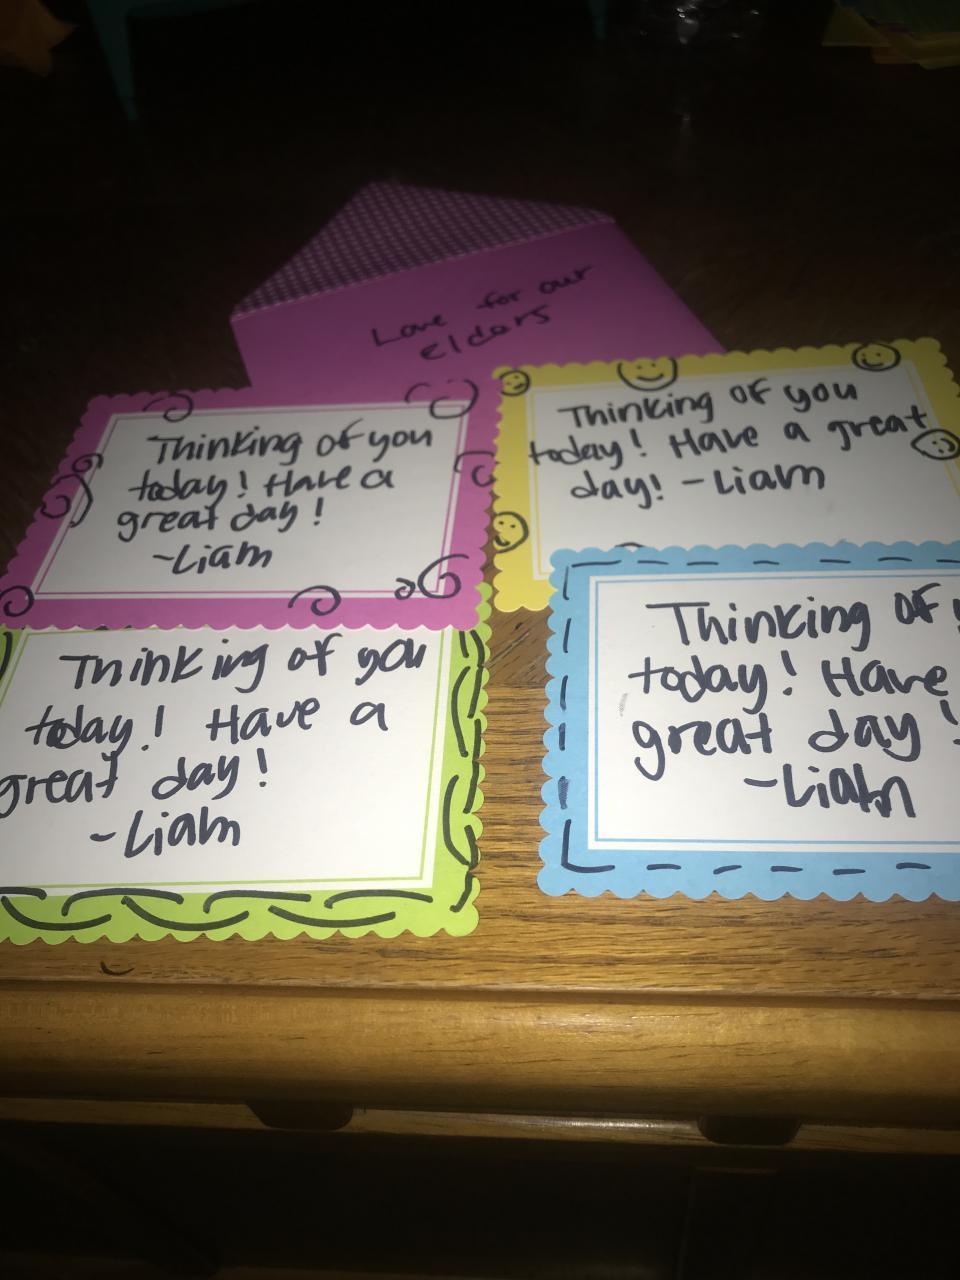 Love for our
elders
Thinking of you
today! Have a
great day!
-Liam
Thinking of you
today! Have a great
day! -Liam
Thinking of you
today! Have a
great day!
-Liam
Thinking of
today! Have
great day!
-Liam